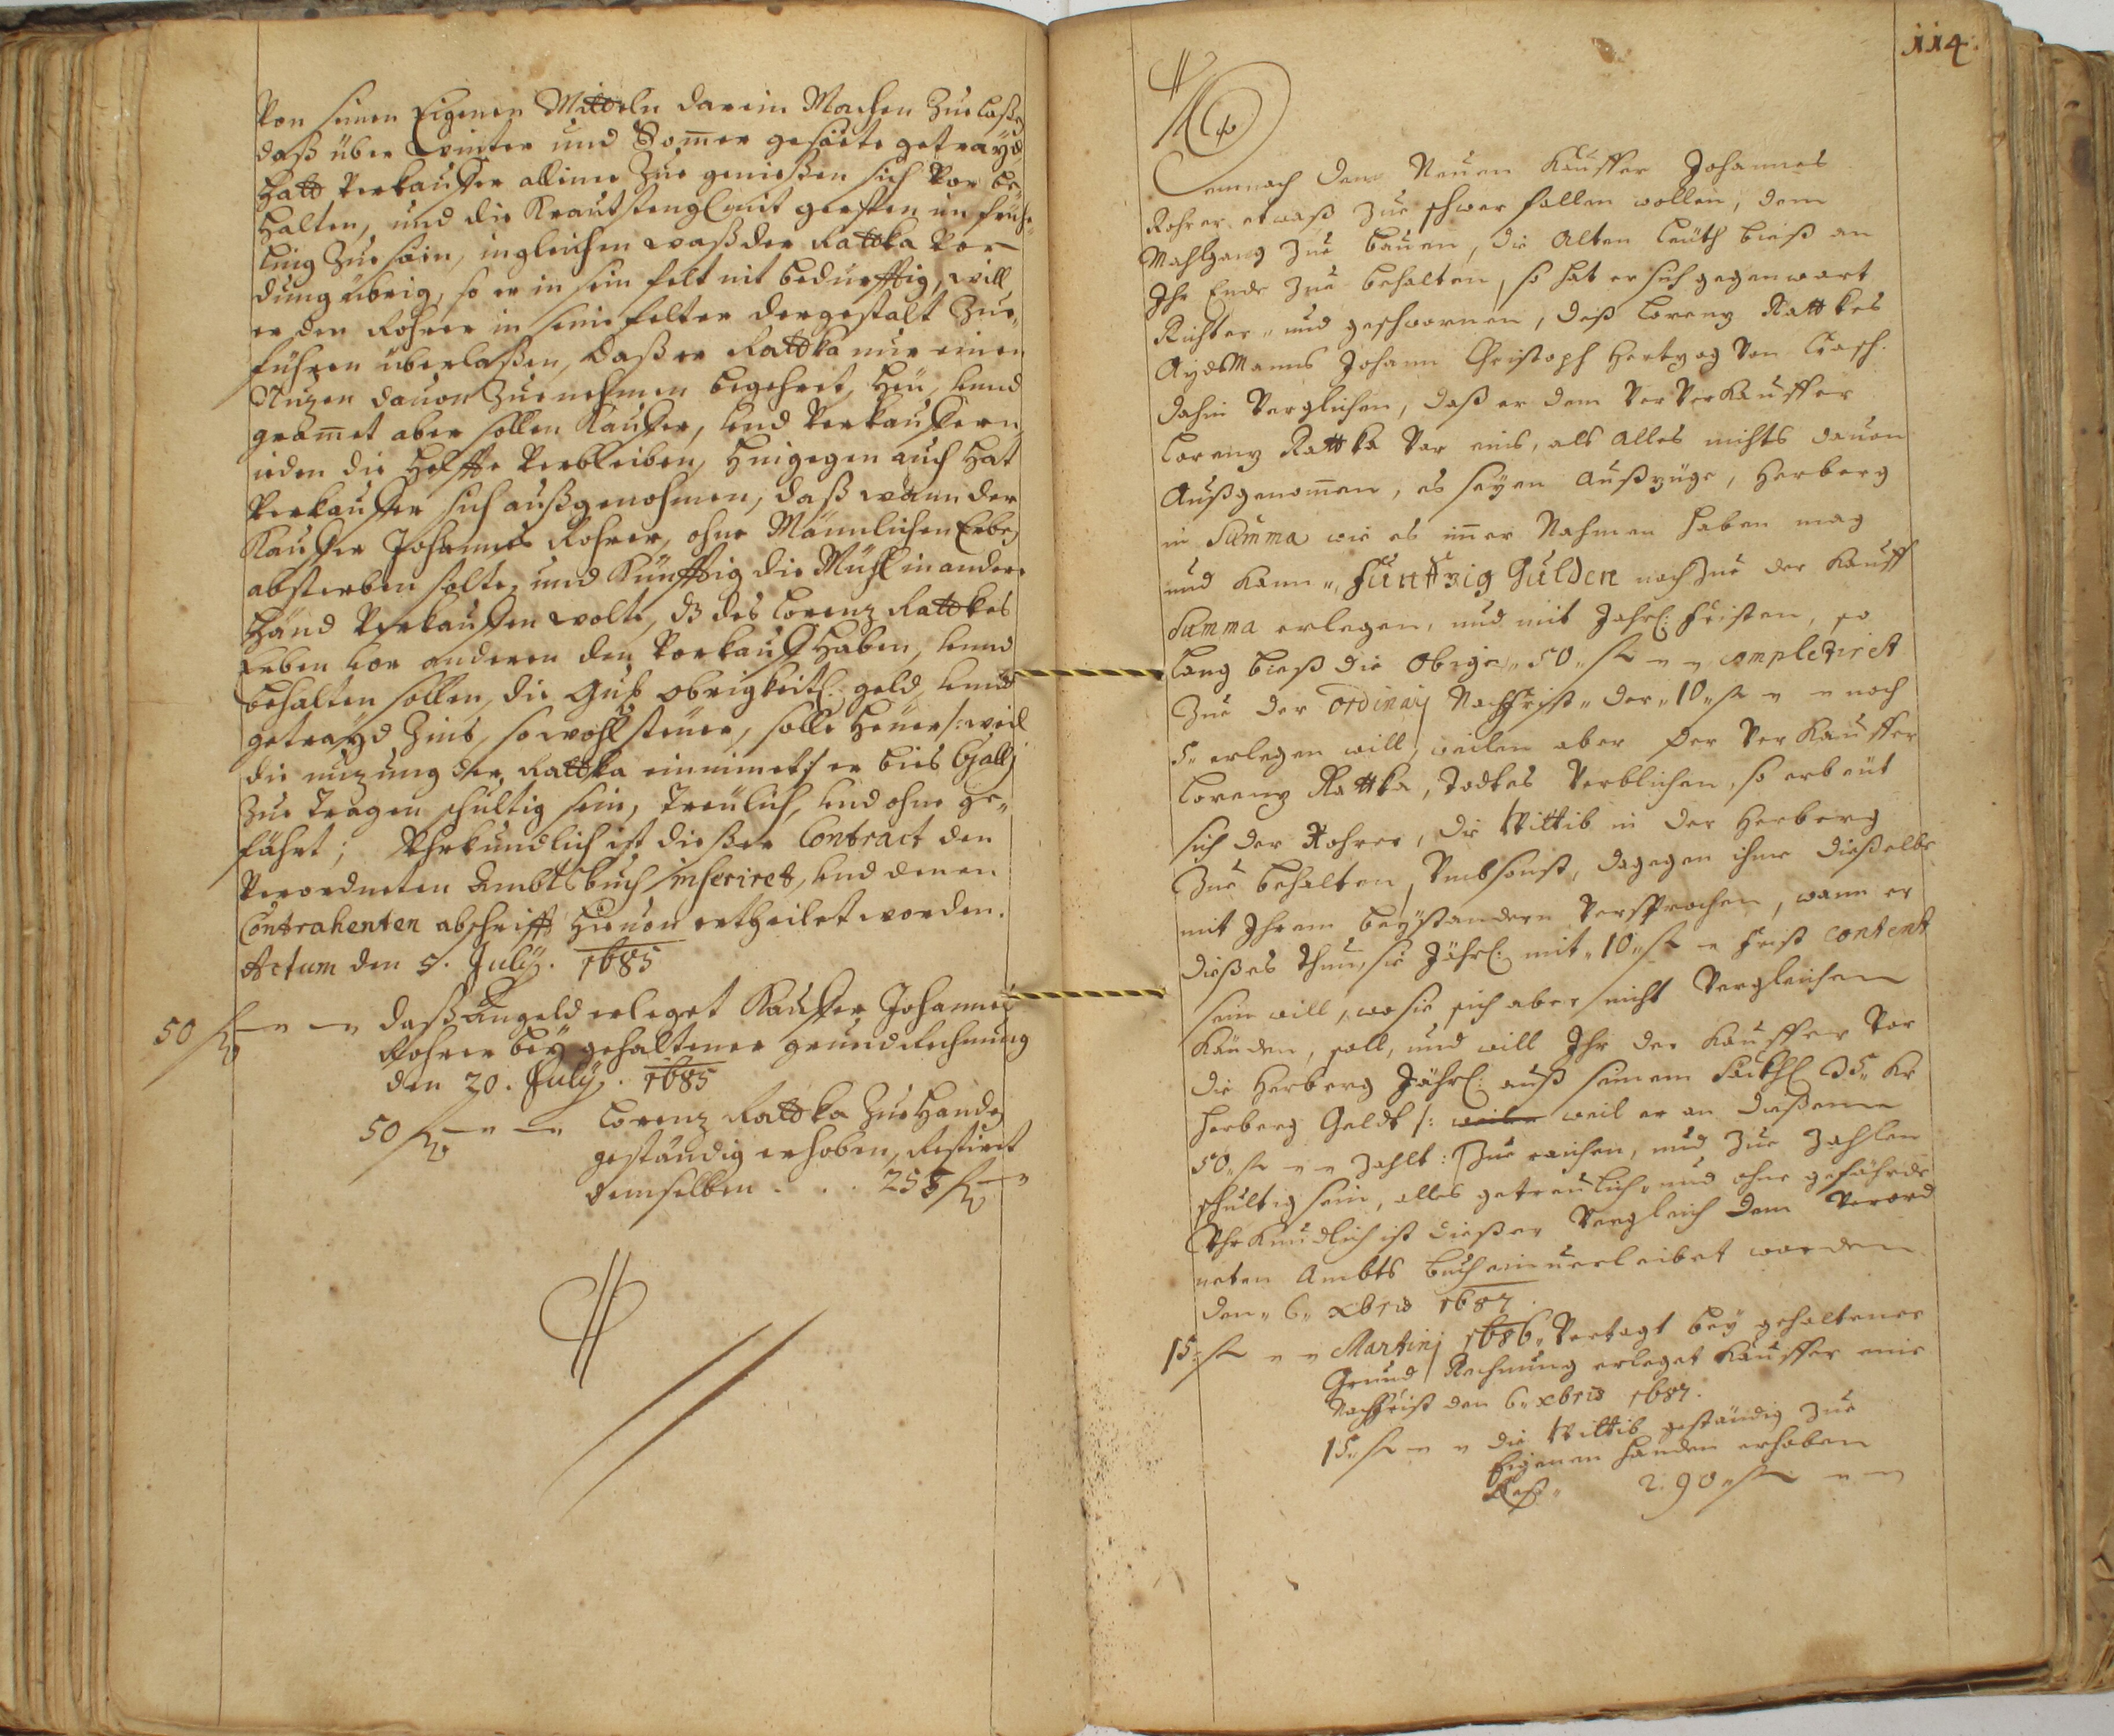 Von seinen Eigenen Mitteln darein Machen Zue laßen
daß über winter und Som̄er gesäete getrayd
Hatt Verkauffer alleine Zue genießen sich Vor be-
Halten, und die Krautstengl mit gersten im früh-
ling Zue säen, ingleichen waß der Rattka Vor
dung übrig, so er in sein felt nit bedürfftig, will
er den Rohrer in seine felter dergestalt Zue-
führen überlaßen, daß er Rattka nur einen
Nuzen dauon Zue nehmen begehret, Heu, unnd
gram̄et aber sollen Kauffer, und Verkauffern
ieden die Helffte Verbleiben, Hingegen auch Hat
Verkauffer sich außgenohmen, daß wann der
Kauffer Johannes Rohrer, ohne Männlichen Erben
absterben solte, und Künfftig die Mühl in andere
Händ Verkauffen wolte, dz des Lorenz Rattkes
Erben vor anderen den Vorkauff Haben, unnd
behalten sollen, die Guß obrigkeitl: geld, unnd
getrayd Zins, so wohl steüer, solle Heüer /: weil
die nuzung der Rattka einnimet :/ er bies Galli
Zue tragen schultig sein, treülich, und ohne ge-
fährt; Uhrkundlich ist dießer Contract den
Verordneten Ambtsbuch inseriret, und denen
Contrahenten abschrifft Hieuon ertheilet worden.
Actum den 5. July. 1685
50 fl — — daß Angeld erleget Kauffer Johannes
Rohrer bey gehaltener grund Rechnung
den 20. July. 1685
50 fl — — Lorenz Rattka Zue Handen
geständig erhoben, Restiret
demselben . . . 255 fl —
114.
Demnach dem Neuen Kauffer Johannes
Rohrer etwaß Zue schwer fallen wollen, dem
Mahlgang Zue bauen, die Alten leüth bieß an
Ihr Ende Zue behalten, so hat er sich gegenwart
Richter- und geschwornen, deß Lorenz Rattkes
AydsManns Johann Christoph Hertzog Von
dahin Verglichen, daß er dem Vor Verkauffer
Lorenz Rattka Vor eins, als Alles nichts dauon
Außgenom̄en, es seÿen Außzüge, Herberg
in Summa wie es im̄er Nahmen haben mag
und Kann, Fünffzig Gulden noch Zue der Kauff
Summa erlegen, und mit Jahrl: fristen, so
lang bieß die Obige 50 fl — — completiret
Zue der Ordinarj Nachfrist der 10 fl — — noch
5 erlegen will, weilen aber der Verkauffer
Lorenz Rattka, Todtes Verblichen, so erbeüt
sich der Rohrer, die Wittib in der Herberg
Zue behalten, Umbsonst, dagegen ihme dießelbe
mit Ihrem beyständern Versprochen, wann er
dießes thun, sie Jährl: mit 10 fl — frist content
sein will, wo sie sich aber nicht Vergleichen
Känden, soll, und will Ihr der Kauffer Vor
die Herberg Jährl: auß seinem Säckhl 35 Kr
Herberg Geldt /: weil er an dießeme
50 fl — — Zahlt :/ Zue reichen, und Zue Zahlen
schultig sein, alles getreulich, und ohne gefährde
Uhrkundlich ist dießer Vergleich dem Verord
neten Ambts buch einuerleibet worden
den 6 xbris 1687.
15 fl — — Martinj 1686 Vertagt bey gehaltener
Grund Rechnung erleget Kauffer eine
Nachfrist den 6 xbris 1687.
15 fl — — die Wittib geständig Zue
Eigenen handen erhoben
Rest 290 fl — —